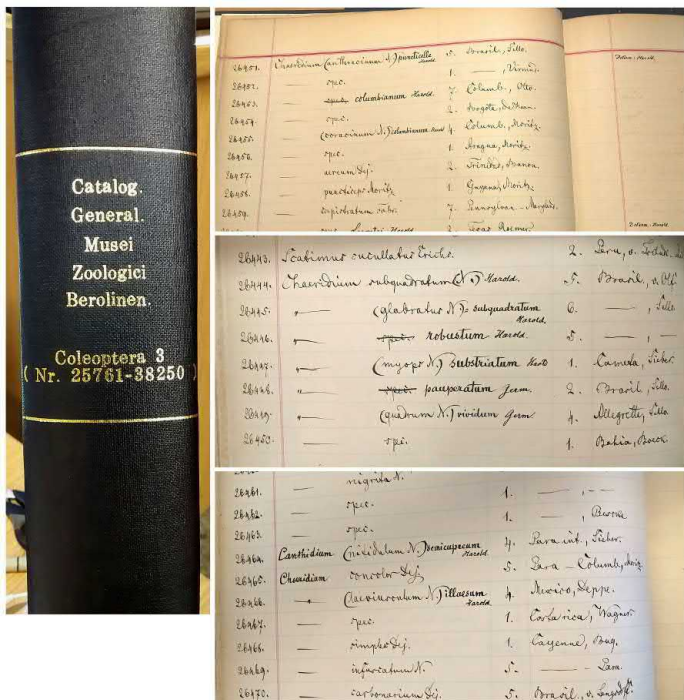 Catalog.
General.
Musei
Zoologici
Berolinen.
Coleoptera 3
( Nr. 25761-38250 )
26451. Choeridium (anthracinum N.) puncticolle Harold 5. Brasil, Sello.
26452. — spec. 1. — , Virmond
26453. — spec. columbianum Harold. 7. Columb., Otto.
26454. — spec. 2. Bogota,
26455. — (coracinum N.) columbianum Harold 4. Columb., Moritz.
26456. — spec. 1. Aragua, Moritz.
26457. — aereum Dej. 2. Trinitas,
26458. — Moritz 1. Guyana, Moritz.
26459. — capistratum Fabr. 7. Pennsylvan - Maryland.
2. Texas Roemer.
26443. Scatimus cucullatus Erichs. 2. Peru, v.
26444. Choeridium subquadratum (N.) Harold. 5. Brasil, v. Olf.
26445. — (glabratus N.) = subquadratum Harold. 6. — , Sello
26446. — spec. robustum Harold. 5. — , —
26447. — (myops N.) substriatum Harold 1. Cameta, Sieber.
26448. — spec. pauperatum Germ. 2. Brasil, Sello.
26449. — (quadrum N.) vividum Germ. 4. Allegrette, Sello
26450. — spec. 1. Bahia,
26461. — nigrita N. 1. — , —
26462. — spec. 1. — , Bescke
26463. — spec.
26464. Canthidium (nitidulum N.) semicupreum Harold. 4. Para int., Sieber.
26465. Choeridium concolor Dej. 5. Para - Columb., Moritz
26466. — (laeviusculum N.) illaesum Harold 4. Mexico, Deppe.
26467. — spec. 1. Costa rica, Wagner.
26468. — simplex Dej. 1. Cayenne, Buq.
26469. — infuscatum N. 5. —
26470. — carbonarium Dej. 5. Brasil, v. Langsdorff.